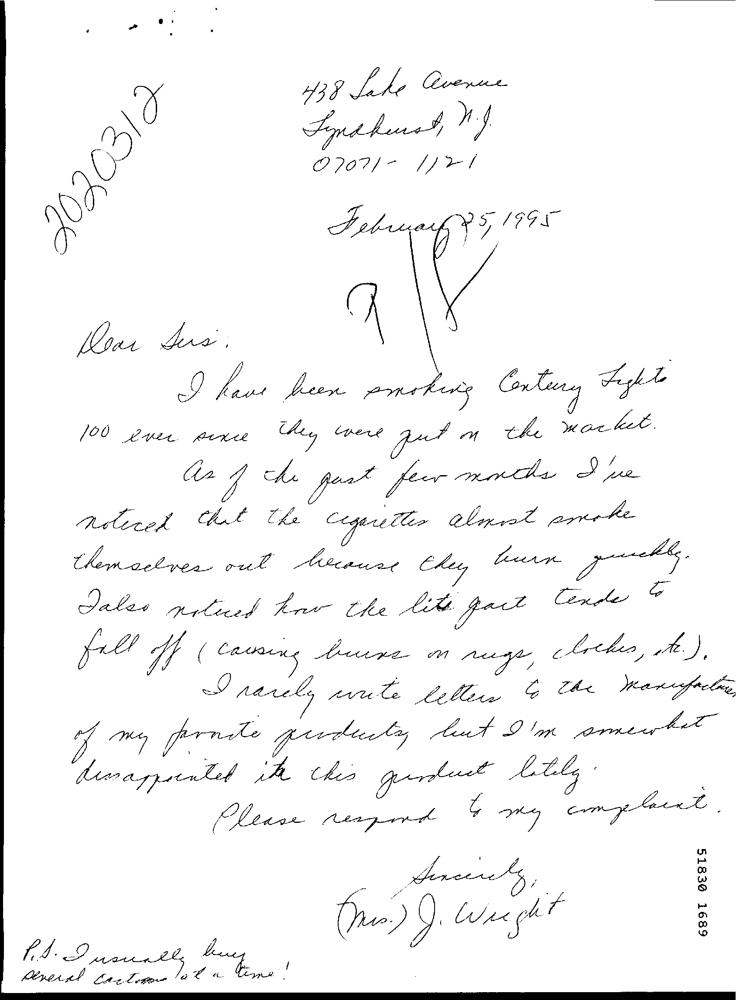 438 Lake Avenue
Lyndhurst, N.J.
07071-1121
2020312
February 25, 1995
Dear Sirs:
I have been smoking Century Lights
100 ever since they were put on the market.
As of the past few months I've
noticed that the cigarettes almost smoke
themselves out because they burn quickly.
I also noticed how the lite part tends to
fall off (causing burns on rugs, clothes, etc.).
I rarely write letters to the manufacturer
of my favorite products, but I'm somewhat
dissappointed in this product lately.
Please respond to my complaint.
Sincerely,
(Mrs.) J. Wright
P.S. I usually buy
several cartons at a time!
51830 1689